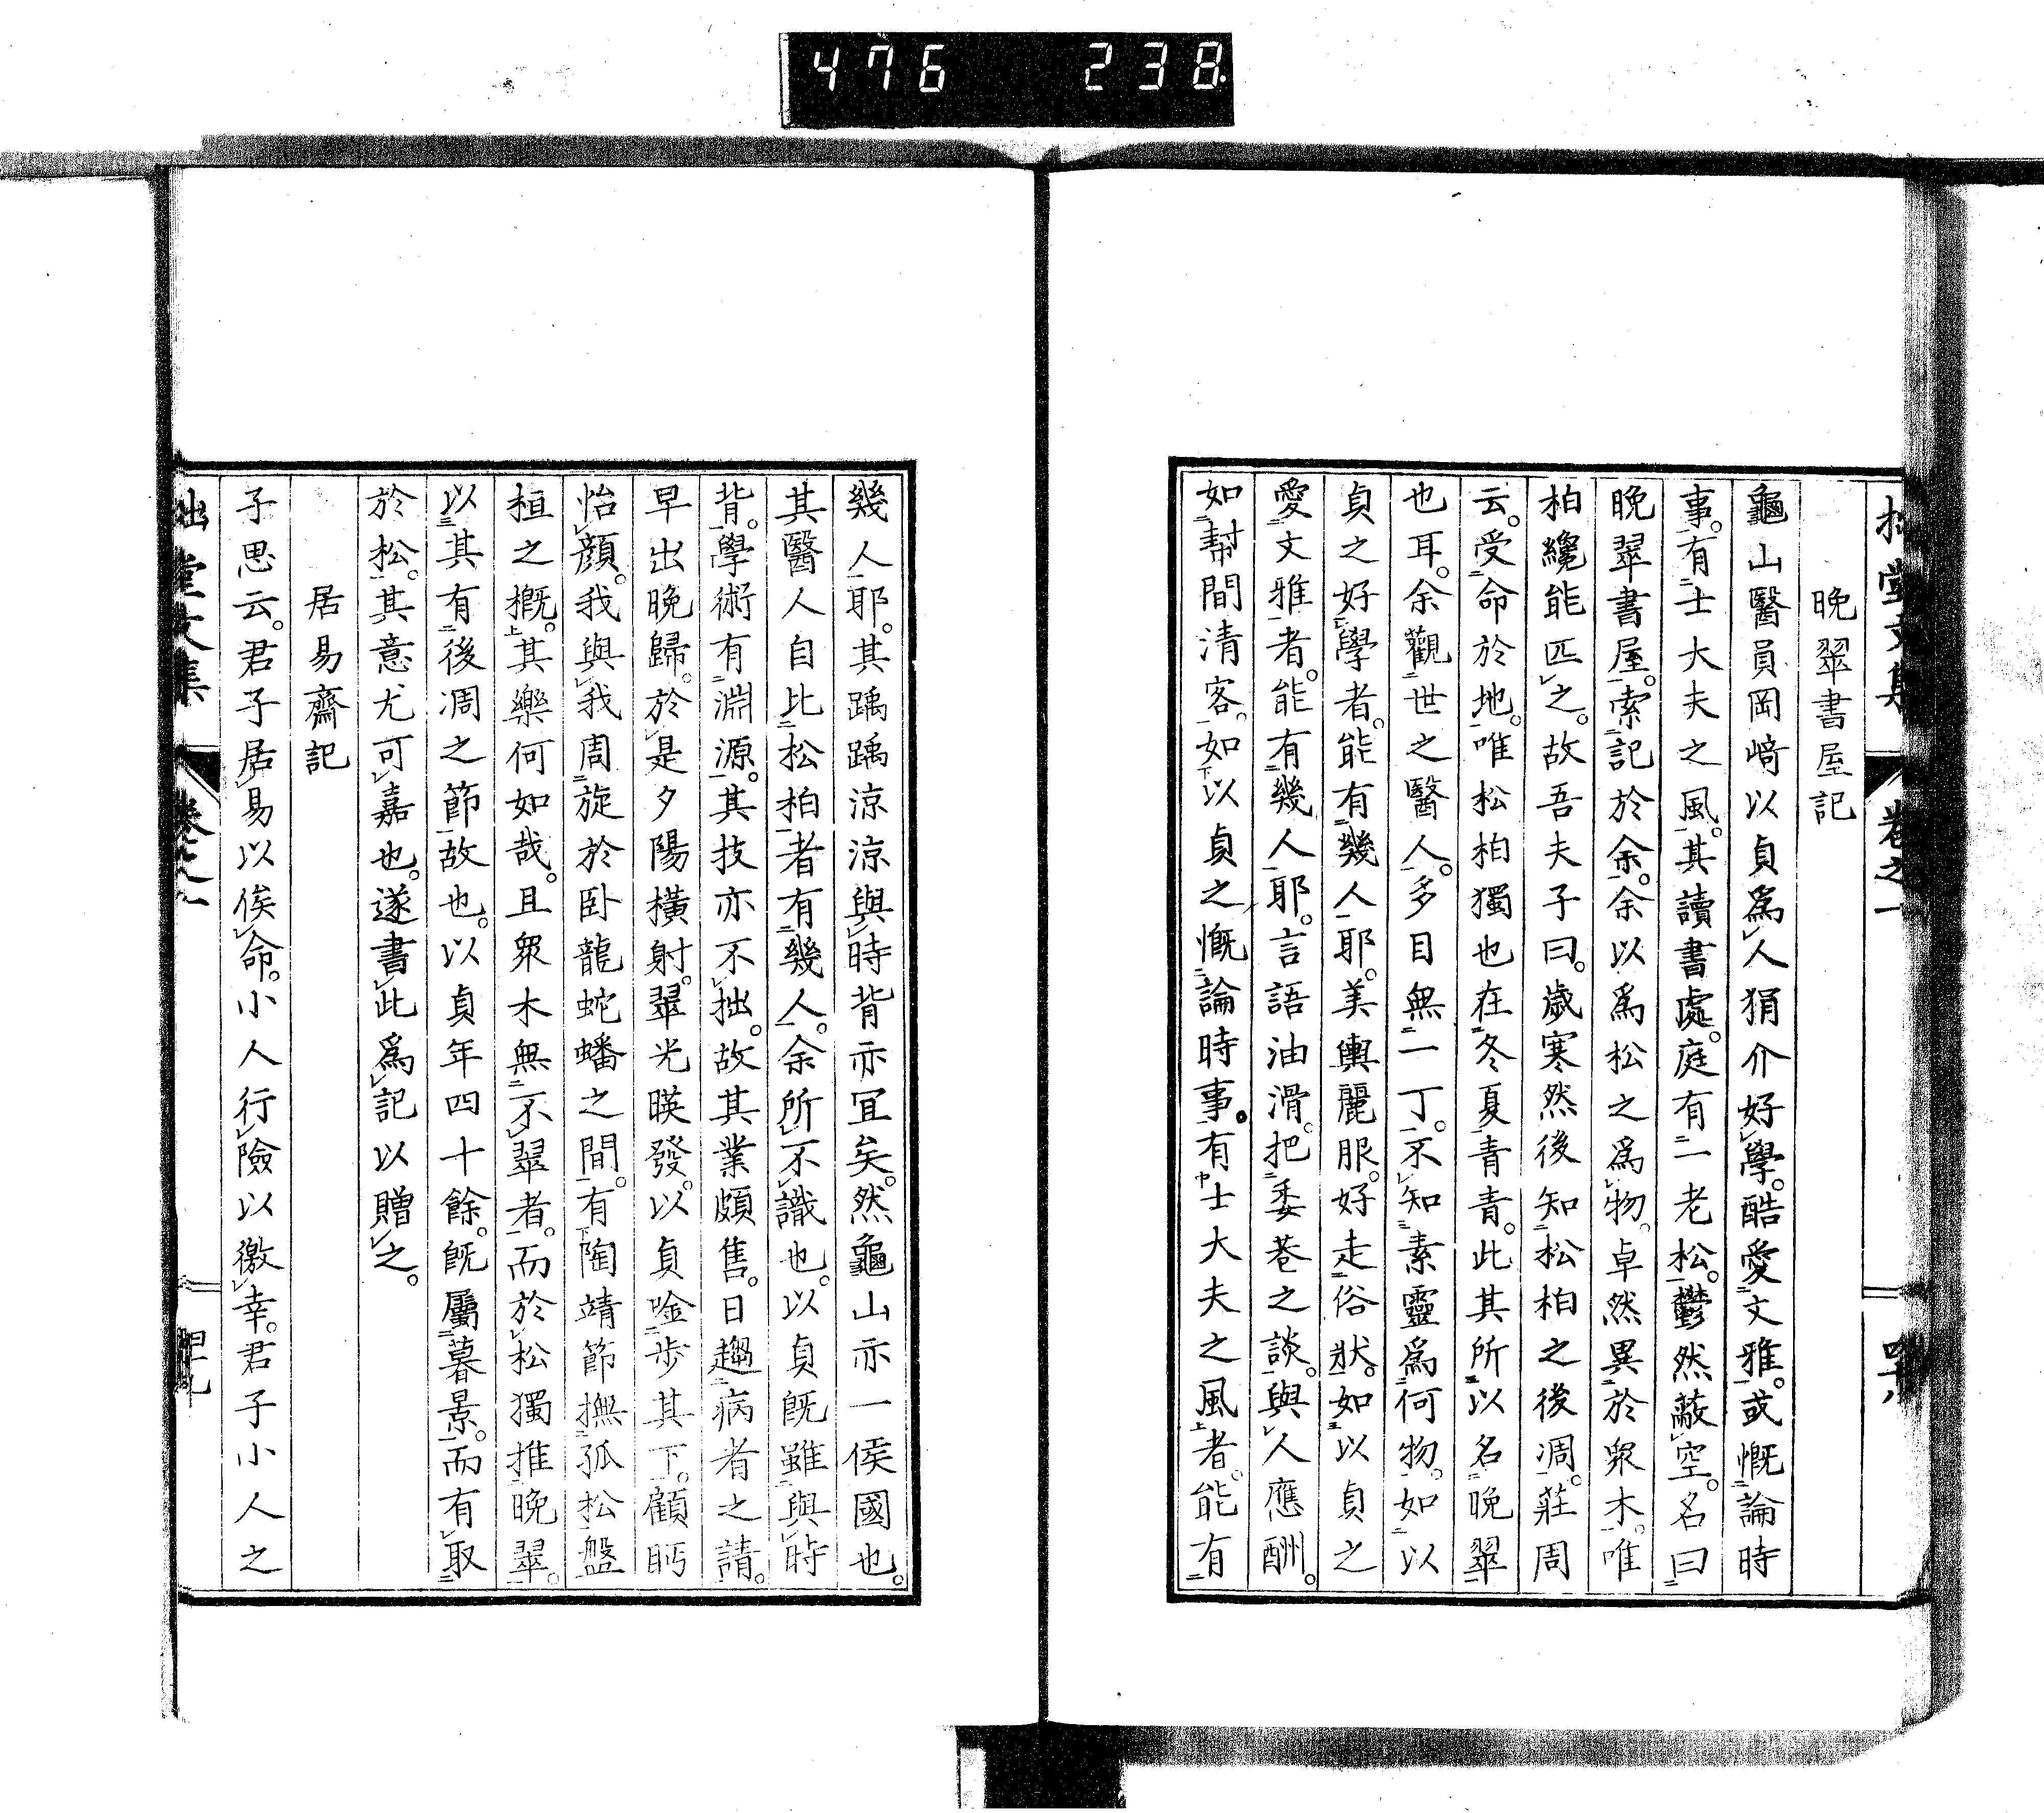 476 238
拙堂文集 卷之一 四十八
晩翠書屋記
龜山醫員岡﨑以貞爲人狷介好學。酷愛文雅。或慨論時
事。有士大夫之風。其讀書處。庭有二老松。鬱然蔽空。名曰
晩翠書屋。索記於余。余以爲松之爲物。卓然異於衆木。唯
柏纔能匹之。故吾夫子曰。歲寒然後知松柏之後凋。莊周
云。受命於地。唯松柏獨也在冬夏青青。此其所以名晩翠
也耳。余觀世之醫人。多目無一丁。不知素靈爲何物。如以
貞之好學者。能有幾人耶。美輿麗服。好走俗狀。如以貞之
愛文雅者。能有幾人耶。言語油滑。把委巷之談。與人應酬。
如幇間清客。如以貞之慨論時事。有士大夫之風者。能有
幾人耶。其踽踽涼涼與時背亦宜矣。然龜山亦一侯國也。
其醫人自比松柏者有幾人。余所不識也。以貞既雖與時
背。學術有淵源。其技亦不拙。故其業頗售。日趨病者之請。
早出晩歸。於是夕陽橫射。翠光暎發。以貞唫步其下。顧眄
怡顏。我與我周旋於卧龍蛇蟠之間。有陶靖節撫孤松盤
桓之槪。其樂何如哉。且衆木無不翠者。而於松獨推晩翠。
以其有後凋之節故也。以貞年四十餘。既屬暮景。而有取
於松。其意尤可嘉也。遂書此爲記以贈之。
居易齋記
子思云。君子居易以俟命。小人行險以徼幸。君子小人之
拙堂文集 卷之一 四十九